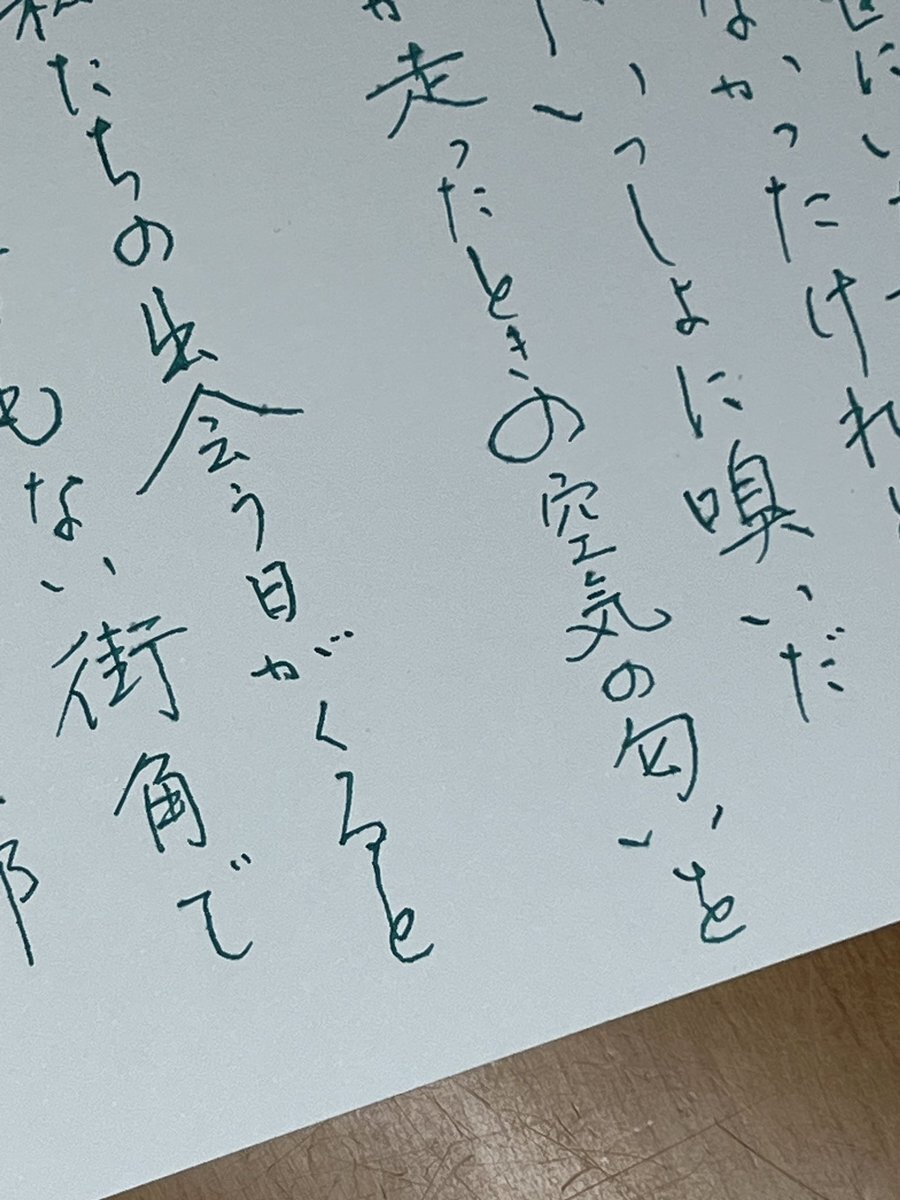 にい
なかったけれ
いっしょに嗅いだ
走ったときの空気の匂いを
私たちの出会う日がくると
もない街角で